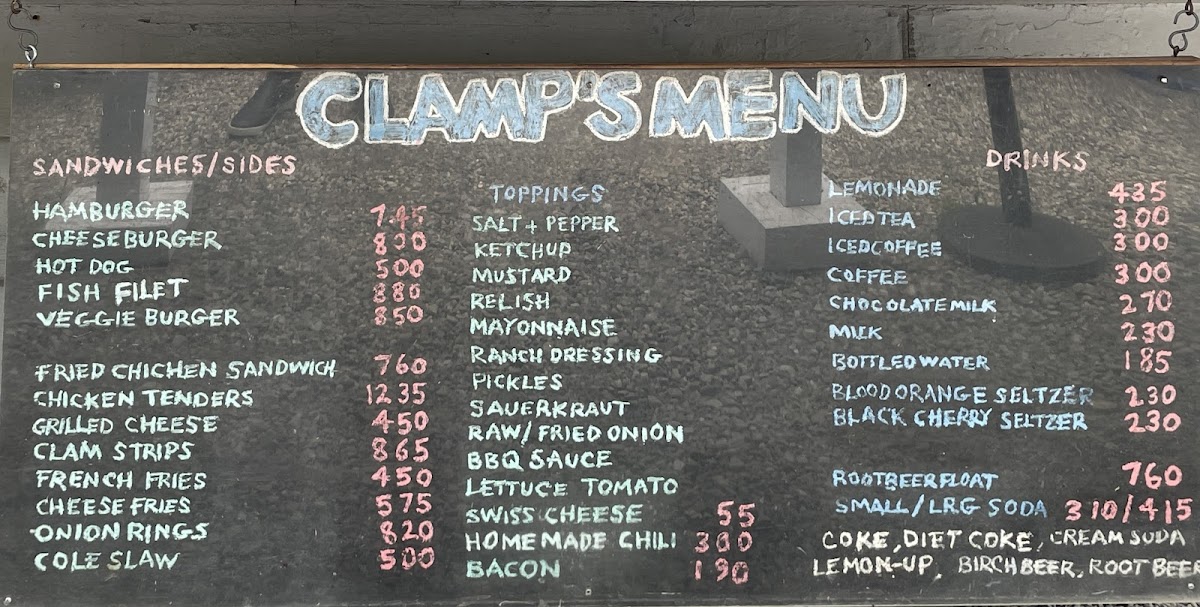 CLAMP'S MENU
SANDWICHES/SIDES
HAMBURGER 745
CHEESEBURGER 800
HOT DOG 500
FISH FILET 880
VEGGIE BURGER 850
FRIED CHICHEN SANDWICH 760
CHICKEN TENDERS 1235
GRILLED CHEESE 450
CLAM STRIPS 865
FRENCH FRIES 450
CHEESE FRIES 575
ONION RINGS 820
COLE SLAW 500
TOPPINGS
SALT + PEPPER
KETCHUP
MUSTARD
RELISH
MAYONNAISE
RANCH DRESSING
PICKLES
SAUERKRAUT
RAW/FRIED ONION
BBQ SAUCE
LETTUCE TOMATO
SWISS CHEESE 55
HOMEMADE CHILI 300
BACON 190
DRINKS
LEMONADE 435
ICED TEA 300
ICED COFFEE 300
COFFEE 300
CHOCOLATE MILK 270
MILK 230
BOTTLED WATER 185
BLOOD ORANGE SELTZER 230
BLACK CHERRY SELTZER 230
ROOTBEER FLOAT 760
SMALL/LRG SODA 310/415
COKE, DIET COKE, CREAM SODA
LEMON-UP, BIRCH BEER, ROOT BEER